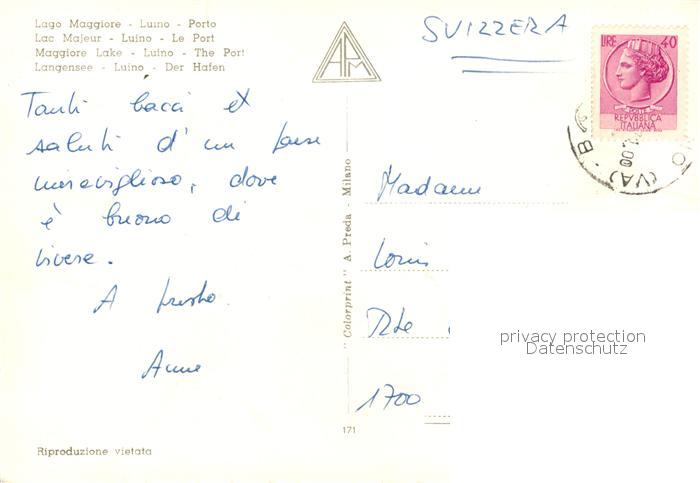 Lago Maggiore - Luino - Porto
Lac Majeur - Luino - Le Port
Maggiore Lake - Luino - The Port
Langensee - Luino - Der Hafen
APM
SVIZZERA
LIRE 40
POSTE
REPVBBLICA
ITALIANA
(VA)
Tanti bacci et
saluti d'un paese
meraviglioso, dove
è buono di
vivere.
A presto
Anne
"Colorprint" A. Preda - Milano
Madame
Louis
Rte
1700
privacy protection
Datenschutz
171
Riproduzione vietata